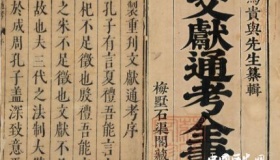 馬貴與先生纂輯
文獻通考全書
梅墅石渠閣
製重刊文獻通考序
孔子有言夏禮吾能言
杞不足徵也殷禮吾能
之宋不足徵也文獻不
故也夫三代之法制大
於成周孔子蓋深致意